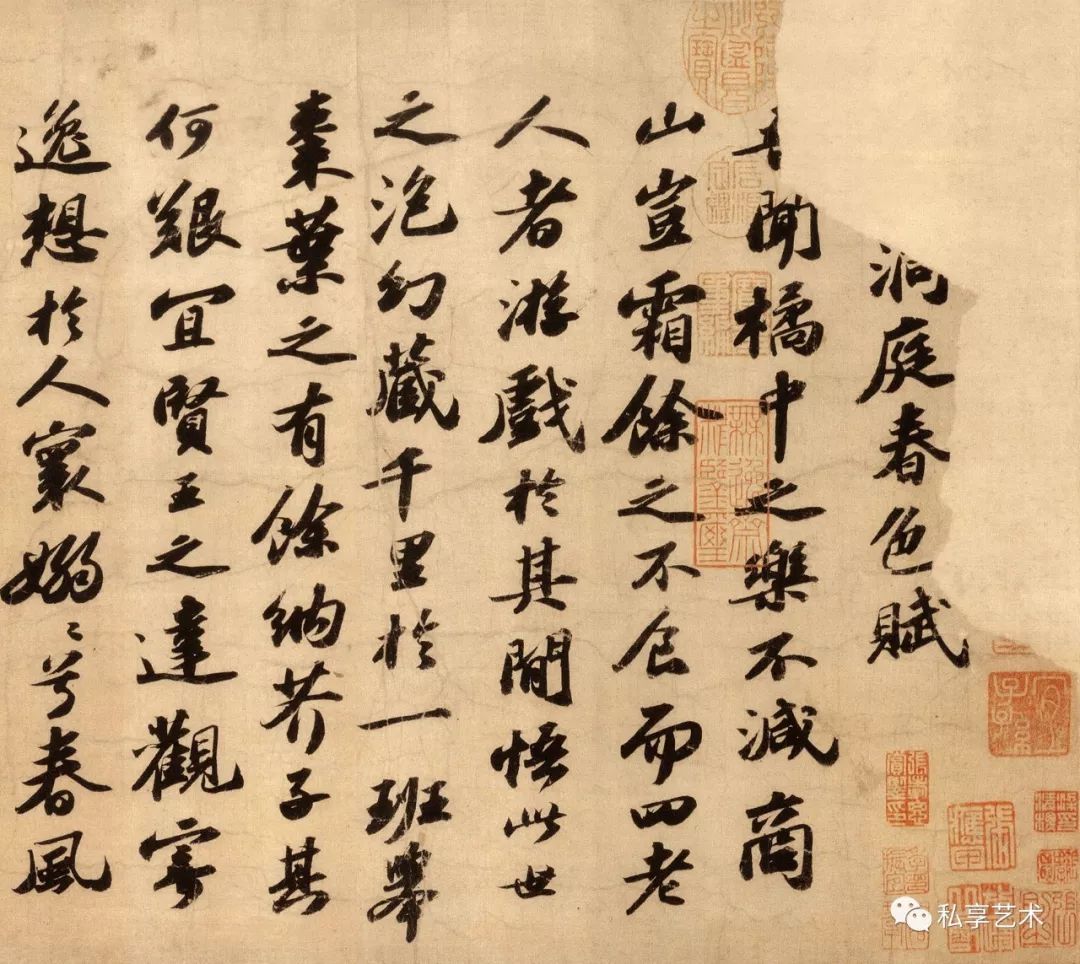 洞庭春色賦
聞橘中之樂不減商
山豈霜餘之不食而四老
人者游戲於其閒悟此世
之泡幻藏千里於一班舉
棗葉之有餘納芥子其
何艱宜賢王之達觀寄
逸想於人寰嫋〻兮春風
私享艺术